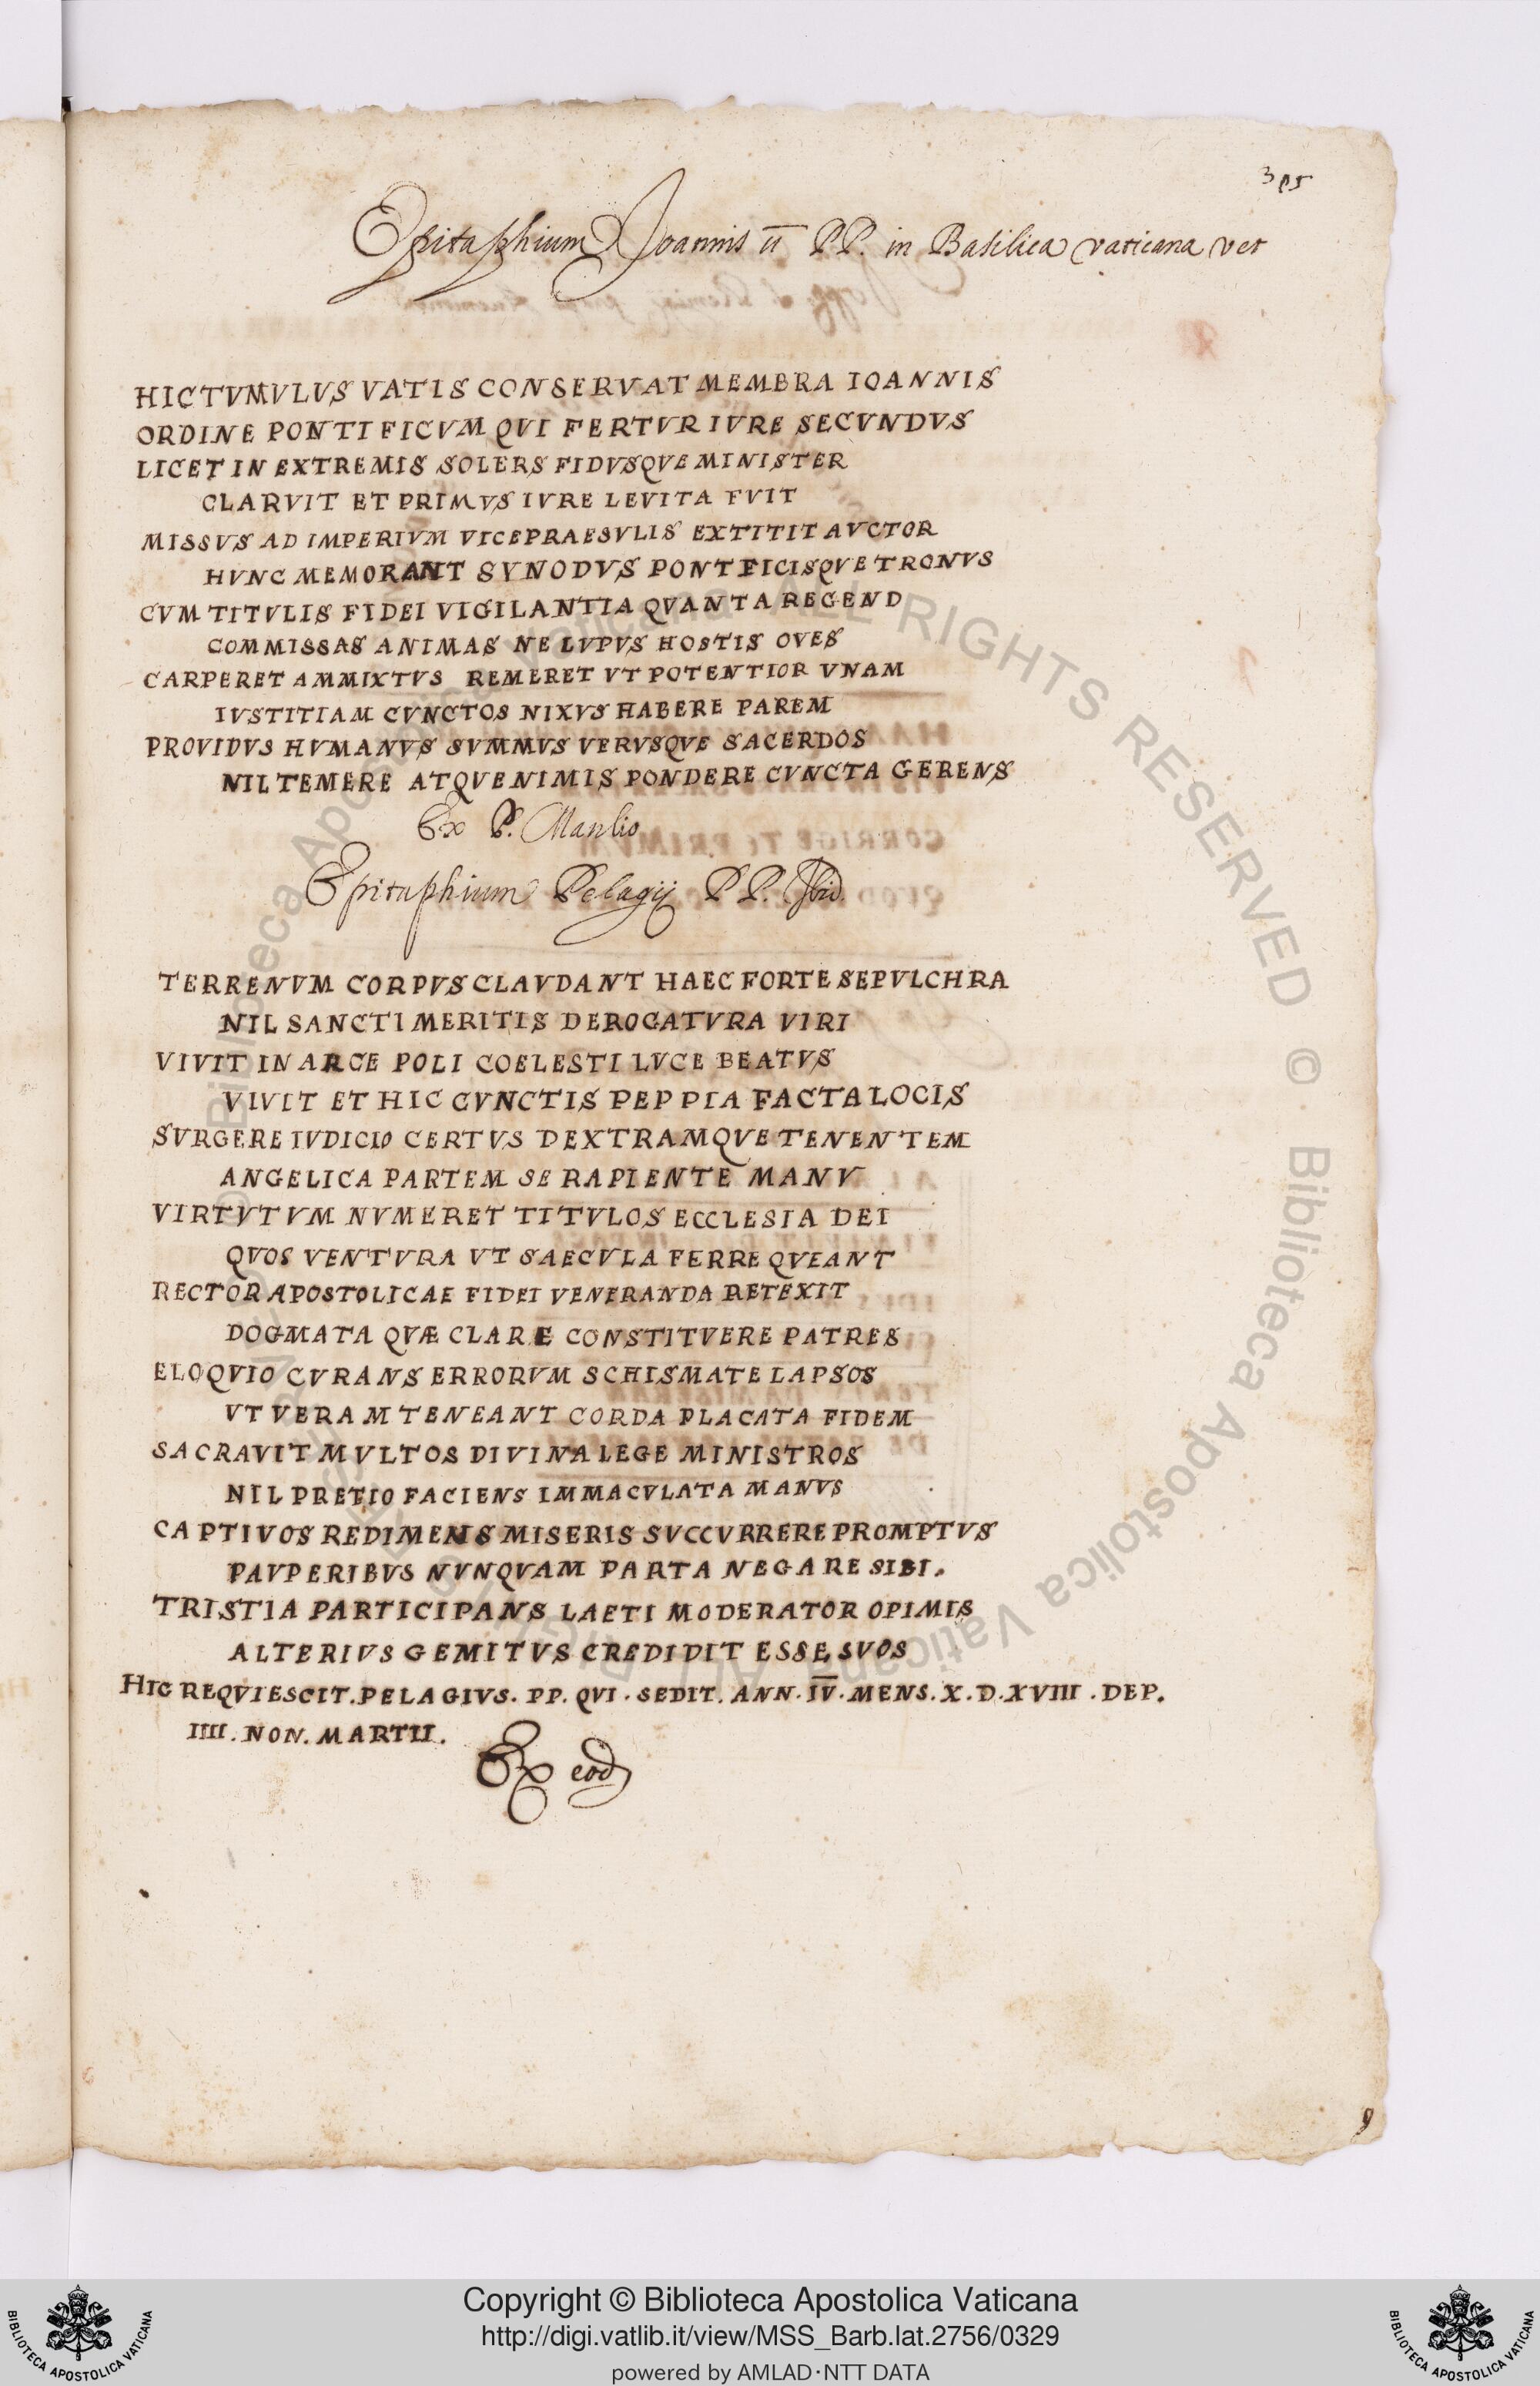 3 95
Epitaphium Joannis II PP. in Basilica Vaticana vet
HIC TVMVLVS VATIS CONSERVAT MEMBRA IOANNIS
ORDINE PONTIFICVM QVI FERTVR IVRE SECVNDVS
LICET IN EXTREMIS SOLERS FIDVSQVE MINISTER
CLARVIT ET PRIMVS IVRE LEVITA FVIT
MISSVS AD IMPERIVM VICEPRAESVLIS EXTITIT AVCTOR
HVNC MEMORANT SVNODVS PONTFICISQVE TRONVS
CVM TITVLIS FIDEI VIGILANTIA QVANTA REGEND
COMMISSAS ANIMAS NE LVPVS HOSTIS OVES
CARPERET AMMIXTVS REMERET VT POTENTIOR VNAM
IVSTITIAM CVNCTOS NIXVS HABERE PAREM
PROVIDVS HVMANVS SVMMVS VERVSQVE SACERDOS
NIL TEMERE ATQVE NIMIS PONDERE CVNCTA GERENS
Ex P. Manlio
Epitaphium Pelagij PP. Ibid.
TERRENVM CORPVS CLAVDANT HAEC FORTE SEPVLCHRA
NIL SANCTI MERITIS DEROGATVRA VIRI
VIVIT IN ARCE POLI COELESTI LVCE BEATVS
VIVIT ET HIC CVNCTIS PEP PIA FACTA LOCIS
SVRGERE IVDICIO CERTVS DEXTRAMQVE TENENTEM
ANGELICA PARTEM SE RAPIENTE MANV
VIRTVTVM NVMERET TITVLOS ECCLESIA DEI
QVOS VENTVRA VT SAECVLA FERRE QVEANT
RECTOR APOSTOLICAE FIDEI VENERANDA RETEXIT
DOGMATA QVÆ CLARE CONSTITVERE PATRES
ELOQVIO CVRANS ERRORVM SCHISMATE LAPSOS
VT VERAM TENEANT CORDA PLACATA FIDEM
SACRAVIT MVLTOS DIVINA LEGE MINISTROS
NIL PRETIO FACIENS IMMACVLATA MANVS
CAPTIVOS REDIMENS MISERIS SVCCVRRERE PROMPTVS
PAVPERIBVS NVNQVAM PARTA NEGARE SIBI.
TRISTIA PARTICIPANS LAETI MODERATOR OPIMIS
ALTERIVS GEMITVS CREDIDIT ESSE SVOS
HIC REQVIESCIT. PELAGIVS. PP. QVI. SEDIT. ANN. IV. MENS. X. D. XVIII. DEP.
IIII. NON. MARTII.
Ex eod
9
© Biblioteca Apostolica Vaticana ALL RIGHTS RESERVED © Biblioteca Apostolica Vaticana
Copyright © Biblioteca Apostolica Vaticana
http://digi.vatlib.it/view/MSS_Barb.lat.2756/0329
powered by AMLAD·NTT DATA
BIBLIOTECA APOSTOLICA VATICANA
BIBLIOTECA APOSTOLICA VATICANA